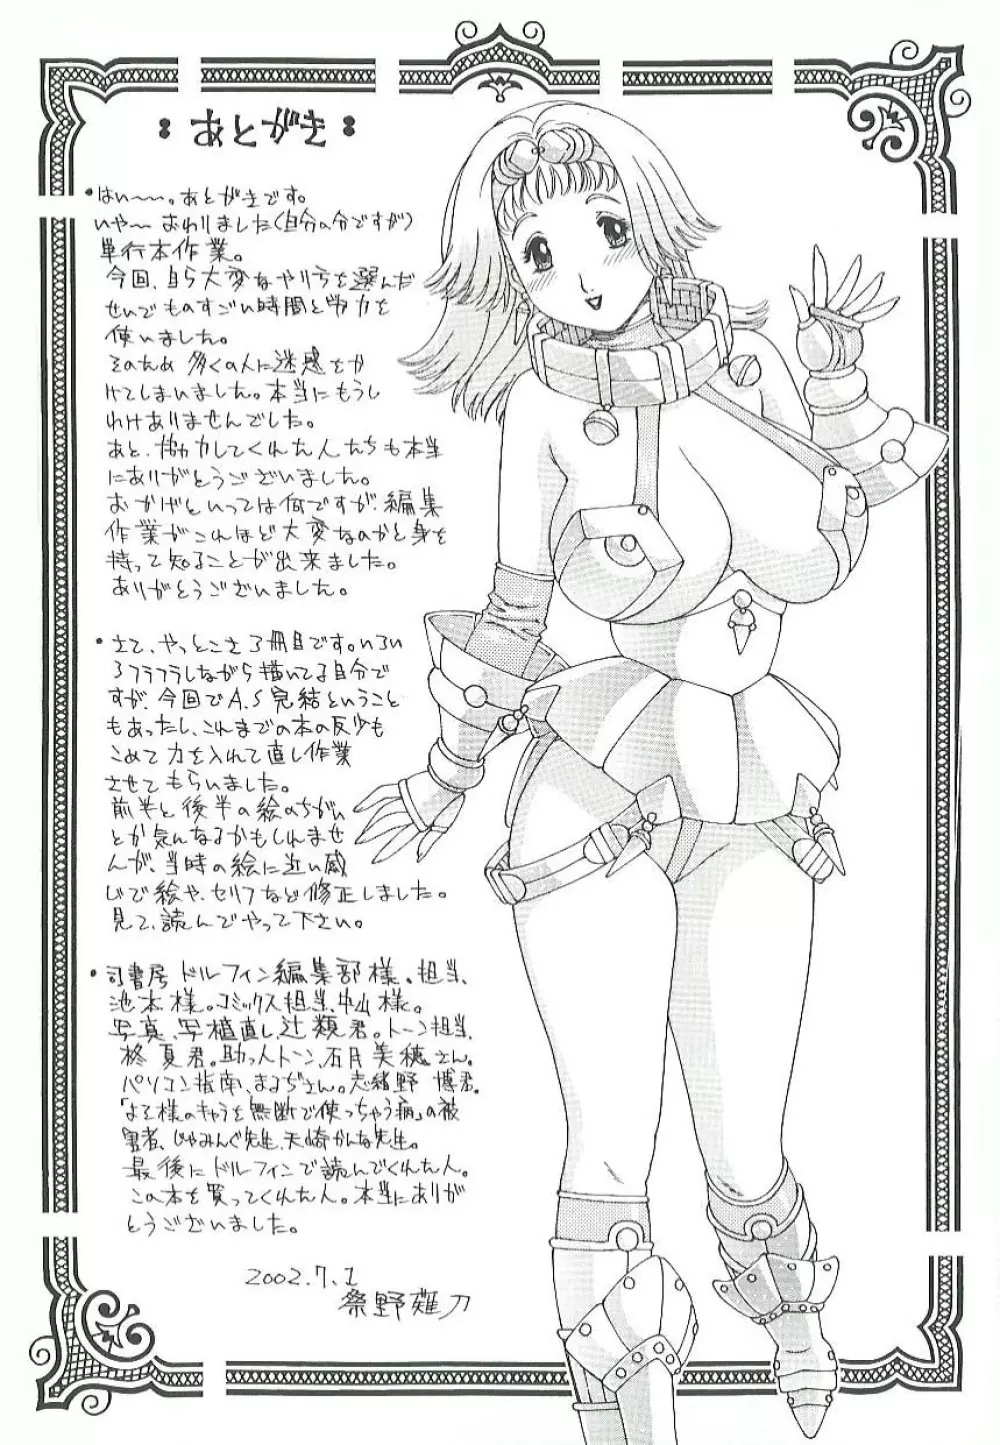 ：あとがき：
・はい〜〜。あとがきです。
いや〜おわりました(自分の分ですが)
単行本作業。
今回、自ら大変なやり方を選んだ
せいでものすごい時間と労力を
使いました。
そのため多くの人に迷惑をか
けてしまいました。本当にもうし
わけありませんでした。
あと、協力してくれた人たちも本当
にありがとうございました。
おかげといっては何ですが、編集
作業がこれほど大変なのかと身を
持って知ることが出来ました。
ありがとうございました。
・さて、やっとこさ3冊目です。いろい
ろフラフラしながら描いてる自分で
すが、今回でA.S完結ということ
もあったし、これまでの本の反省も
こめて力を入れて直し作業
させてもらいました。
前半と後半の絵のちがい
とか気になるかもしれませ
んが、当時の絵に近い感
じで絵や、セリフなど修正しました。
見て、読んでやって下さい。
・司書房ドルフィン編集部様。担当、
池本様。コミックス担当、中山様。
写真、写植直し、辻類君。トーン担当、
柊夏君。助っ人トーン、石月美穂さん。
パソコン指南、まるぢさん。志緒野博君。
「よそ様のキャラを無断で使っちゃう病」の被
害者、じゃみんぐ先生、天崎かんな先生。
最後にドルフィンで読んでくれた人。
この本を買ってくれた人。本当にありが
とうございました。
2002.7.1
祭野薙刀